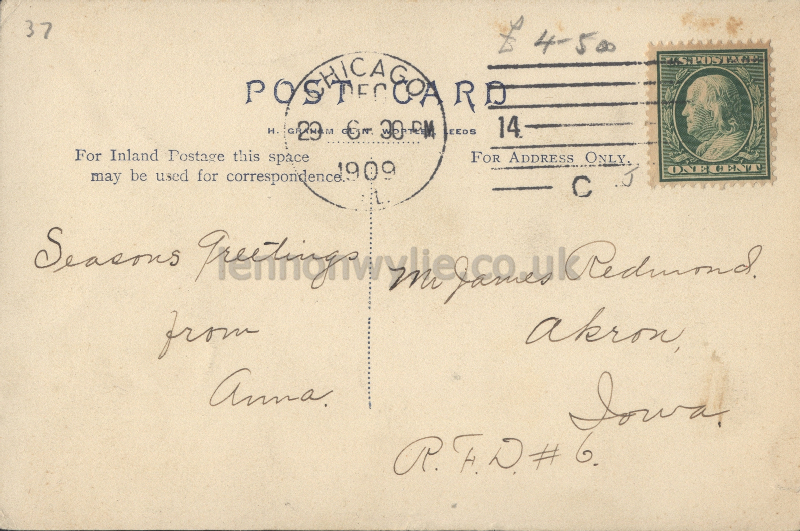 37
£ 4-50
CHICAGO
DEC
POST CARD
29 6 30 PM
14.
For Inland Postage this space
may be used for correspondence.
For Address Only.
1909
C
U.S. POSTAGE
ONE CENT
Seasons Greetings
from
Anna.
lennonwylie.co.uk
Mr James Redmond.
Akron,
Iowa.
R.F.D. #6.